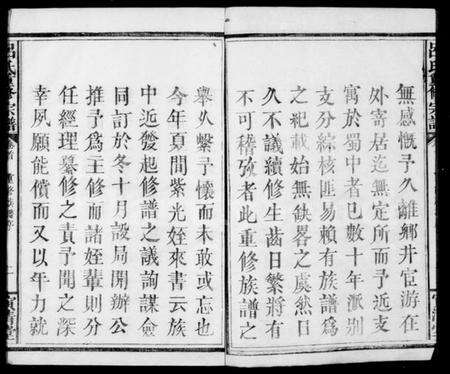 無感慨予久離鄉井宦游在
外寄居迄無定所而予近支
寓於蜀中者已數十年派別
支分綜核匪易賴有族譜爲
之紀載始無缺畧之虞然日
久不議續修生齒日繁將有
不可稽攷者此重修族譜之
舉久繫予懷而未敢或忘也
今年夏間紫光姪來書云族
中近發起修譜之議詢謀僉
同訂於冬十月設局開辦公
推予爲主修而諸姪輩則分
任經理纂修之責予聞之深
幸夙願能償而又以年力就
呂氏 宗譜